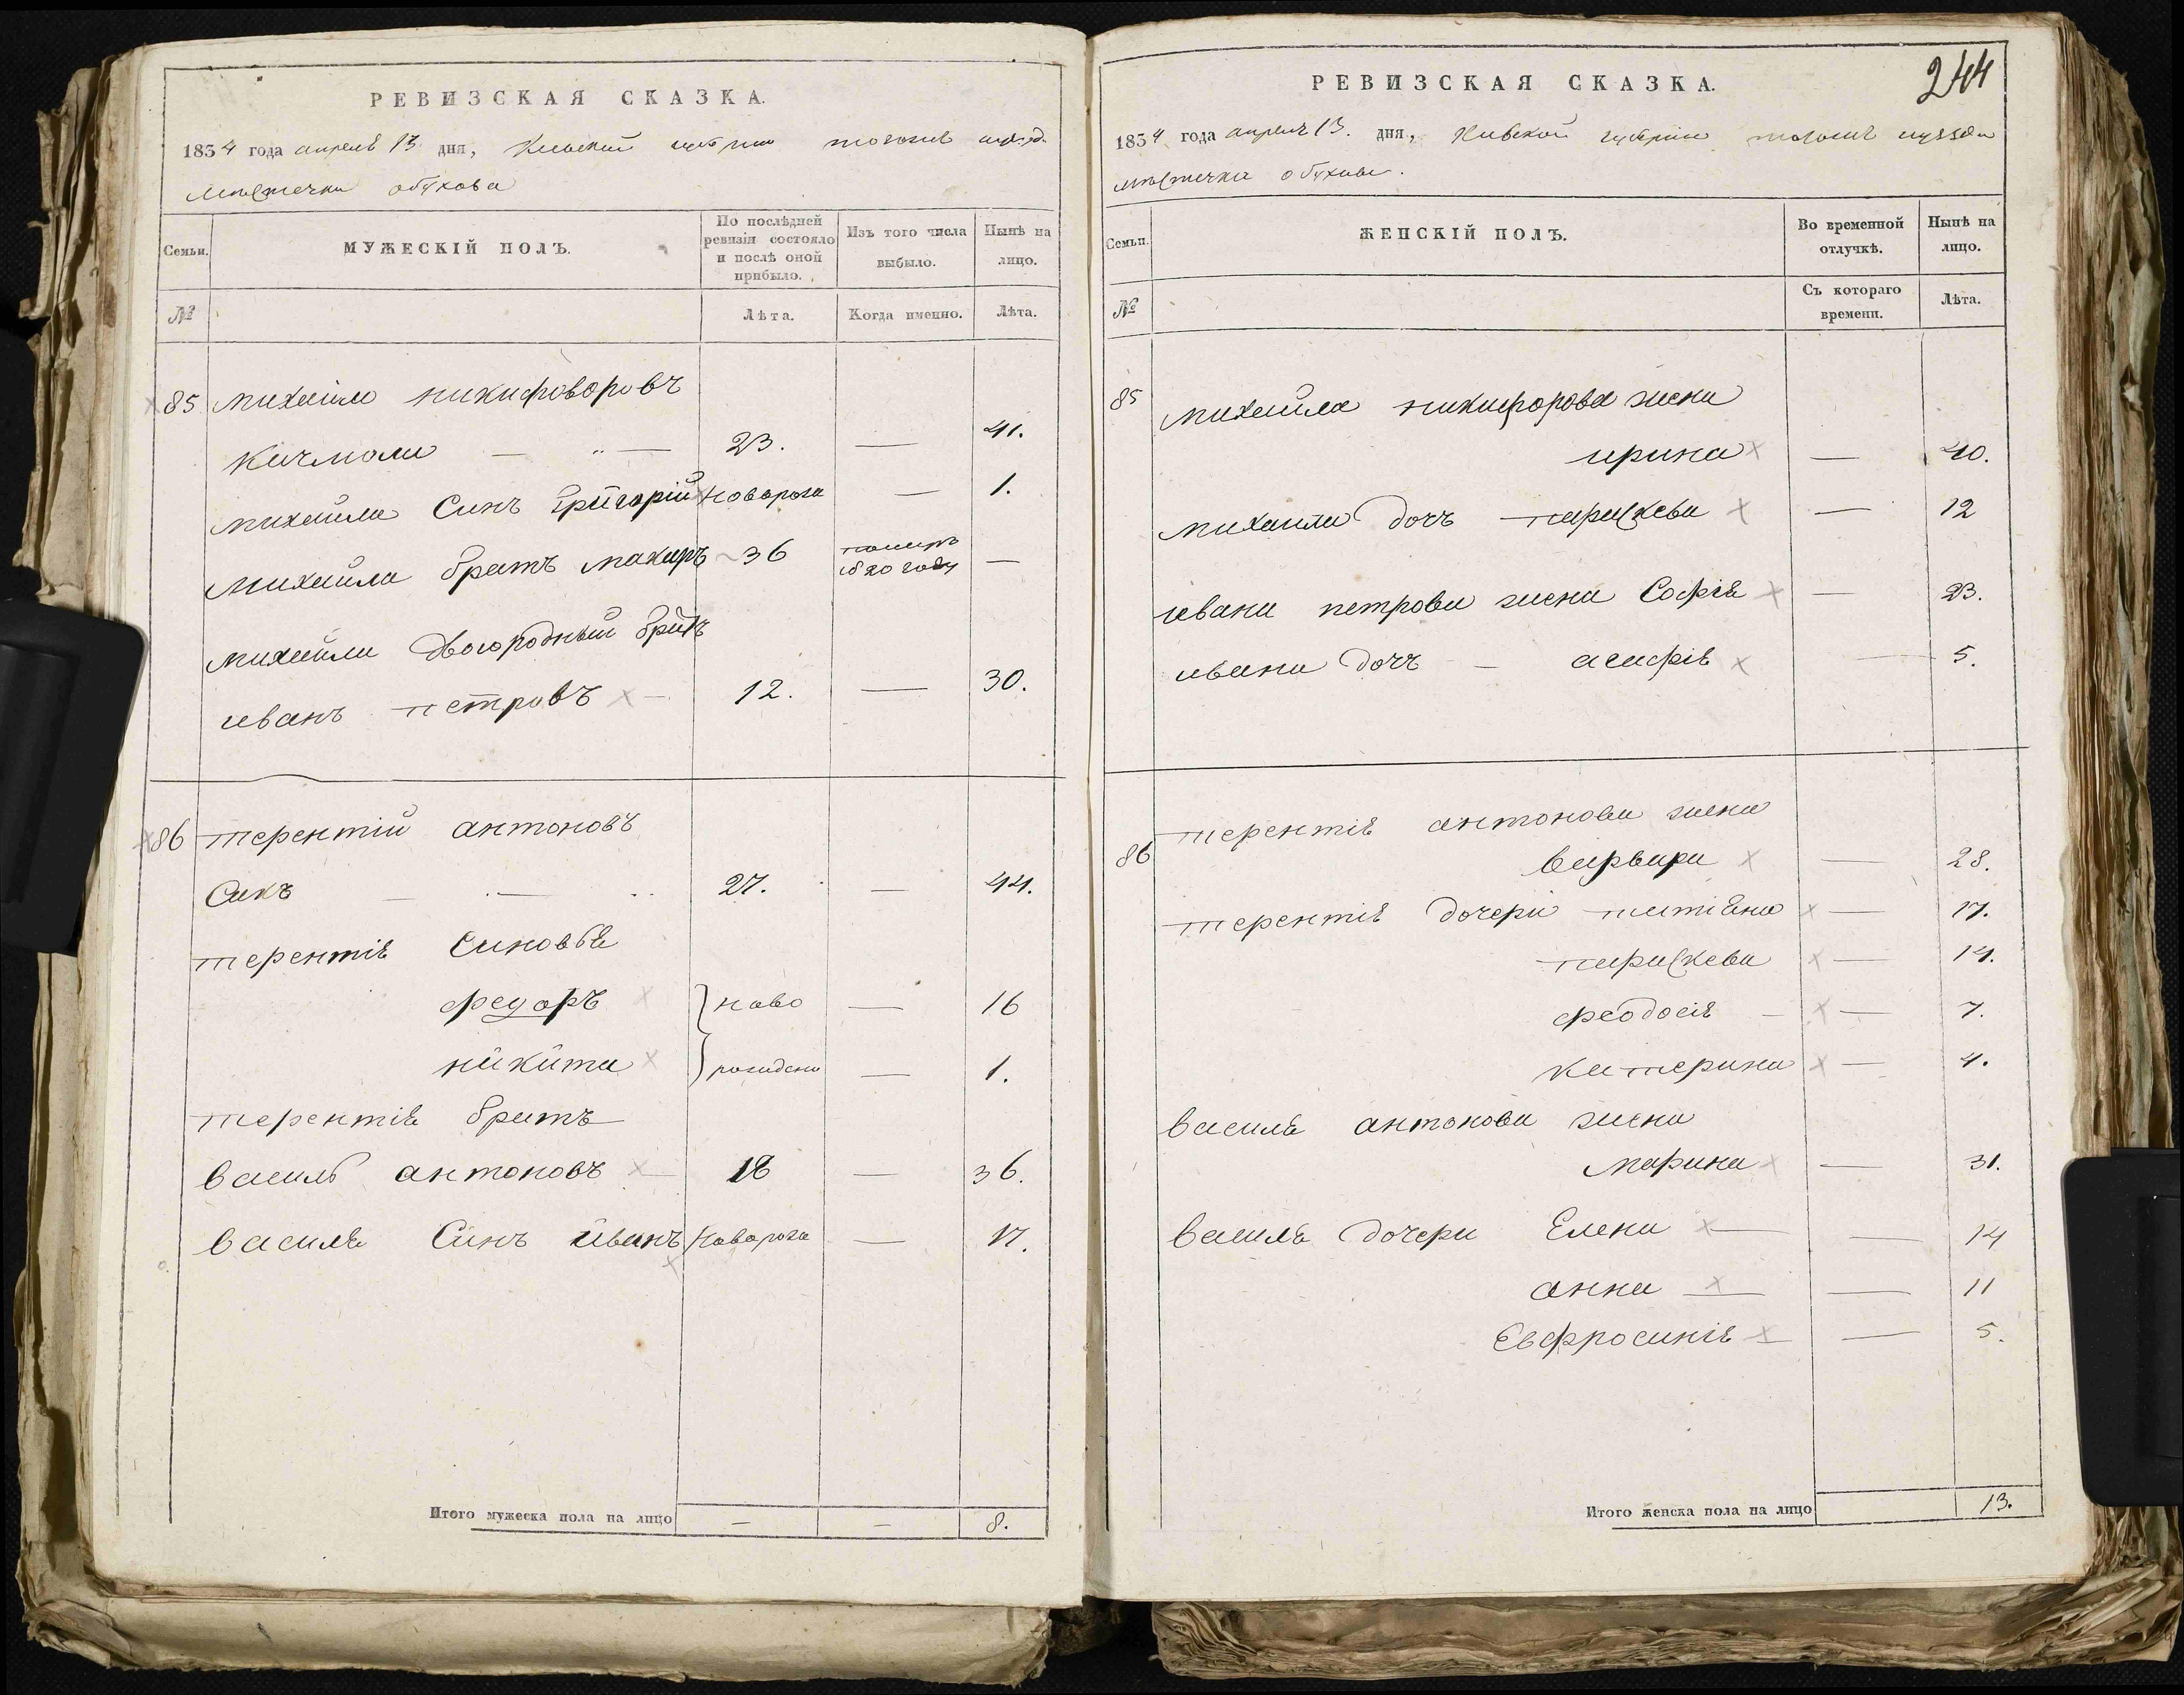 РЕВИЗСКАЯ СКАЗКА.
1854 года апреля 13 дня, Киевской губернии
местечка обухова
Семьи.
МУЖЕСКІЙ ПОЛЪ.
По послѣдней ревизіи состояло и послѣ оной прибыло.
Изъ того числа выбыло.
Нынѣ на лицо.
№
Лѣта.
Когда именно.
Лѣта.
85 михайло никифоворовъ
23. — 41.
михайла Синъ Григорій новорож — 1.
михайла братъ макаръ 36 — 
михайла двоюродный братъ
иванъ петровъ — 12. — 30.
86 терентій антоновъ
Сикъ — 27. — 44.
терентія Синовья
федоръ } ново — 16
никита } рождени — 1.
терентія братъ
василь антоновъ — 18 — 36.
василя Синъ иванъ новорож — 17.
Итого мужеска пола на лицо — — 8.
244
РЕВИЗСКАЯ СКАЗКА.
1854 года апреля 13. дня, Киевской губернии уезда
местечка обухова.
Семьи.
ЖЕНСКІЙ ПОЛЪ.
Во временной отлучкѣ.
Нынѣ на лицо.
№
Съ котораго времени.
Лѣта.
85 михайла никифорова жена
ирина — 40.
михайла дочъ параскева — 12
ивана петрова жена Софія — 23.
ивана дочъ — агафія — 5.
86 терентія антонова жена
варвара — 28.
терентія дочери татіяна — 17.
параскева — 14.
феодосія — — 7.
катерина — 4.
василя антонова жена
марина — 31.
василя дочери Елена — — 14
анна — — 11
Евфросинія — — 5.
Итого женска пола на лицо 13.